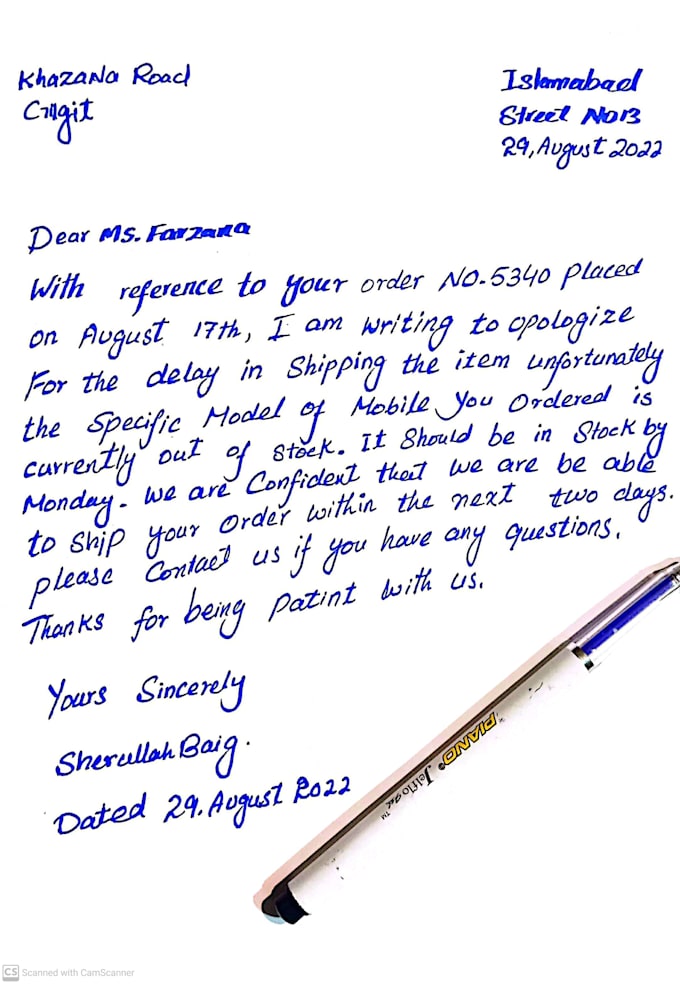 Khazana Road
Gilgit
Islamabad
Street No 13
29, August 2022
Dear Ms. Farzana
With reference to your order NO.5340 Placed
on August 17th, I am writing to opologize
For the delay in Shipping the item unfortunately
the Specific Model of Mobile You Ordered is
currently out of Stock. It Should be in Stock by
Monday. We are Confident that we are be able
to Ship your Order within the next two days.
please Contact us if you have any questions.
Thanks for being Patint with us.
Yours Sincerely
Sherullah Baig.
Dated 29. August 2022
PIANO
Jelflo Gel ™
CS Scanned with CamScanner